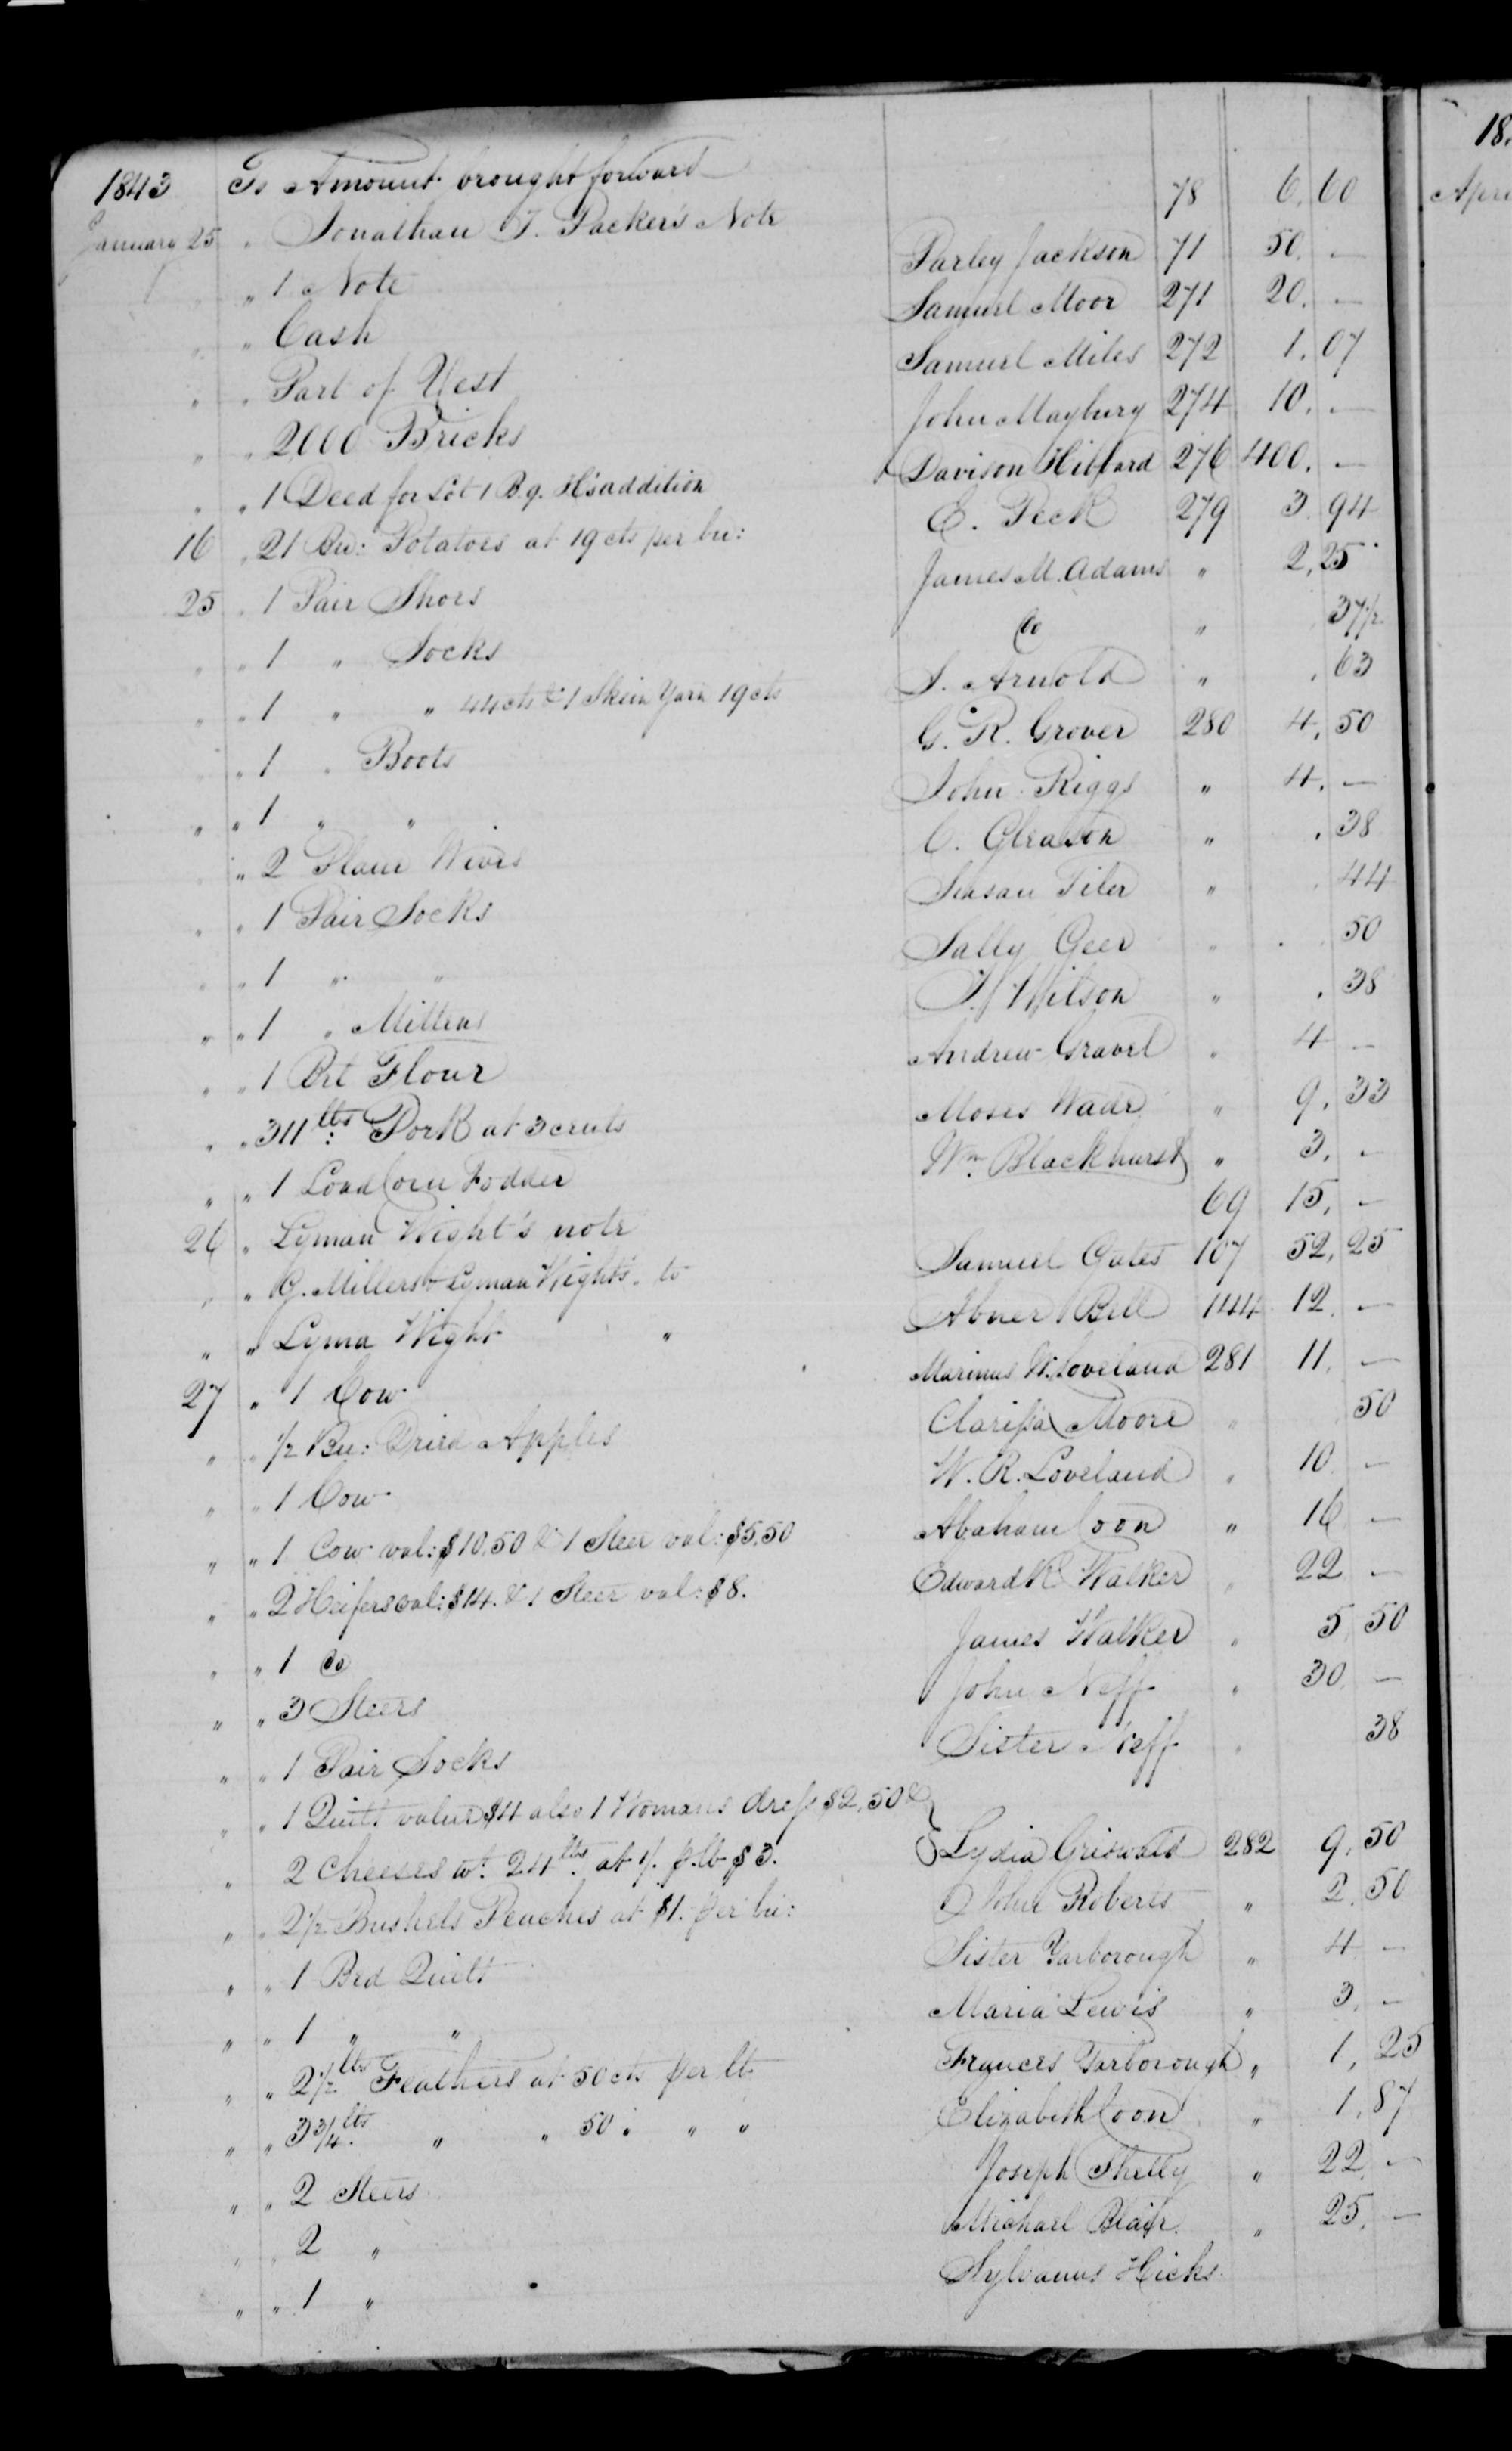 1843 To Amount brought forward
January 25 " Jonathan T. Packer's Note 78 6.60
" " 1 Note Parley Jackson 71 50. —
" " Cash Samuel Moor 271 20. —
" " Part of Vest Samuel Miles 272 1.07
" " 2000 Bricks John Maybury 274 10. —
" " 1 Deed for Lot 1 B.9. H'saddition Davison Hibbard 276 400. —
16 " 21 Bu: Potatoes at 19 cts per bu: E. Peck 279 3.94
25 " 1 Pair Shoes James M. Adams " 2.25
" " 1 " Socks Do " 37½
" " 1 " " 44 cts & 1 Skein Yarn 19 cts S. Arnold " .63
" " 1 " Boots G. R. Grover 280 4.50
" " 1 " " John Riggs " 4. —
" " 2 Plane Irons C. Gleason " .38
" " 1 Pair Socks Susan Tiler " .44
" " 1 " " Sally Geer " .50
" " 1 " Mittens Wilson " .38
" " 1 Brl Flour Andrew Gravel " 4 —
" " 311 lbs: Pork at 3 cents Moses Wade " 9.33
" " 1 Load Corn Fodder Wm Blackhurst " 3. —
26 " Lyman Wight's note 69 15. —
" " G. Millers & Lyman Wight's Do Samuel Gates 107 52.25
" " Lyma Wight " Abner Bell 144 12. —
27 " 1 Cow Marinus W. Loveland 281 11. —
" " ½ Bu: Dried Apples Clarissa Moore " 50
" " 1 Cow W. R. Loveland " 10 —
" " 1 Cow val: $10.50 & 1 Steer val: $5.50 Abaham Coon " 16 —
" " 2 Heifers val: $14. & 1 Steer val: $8. Edward K Walker " 22 —
" " 1 Do James Walker " 5 50
" " 3 Steers John Neff " 30. —
" " 1 Pair Socks Sister Neff " 38
" " 1 Quilt value $4 also 1 Womans dress $2.50 &
" 2 Cheeses wt. 24 lbs. at 1/. p. lb $3. Lydia Griswold 282 9.50
" " 2½ Bushels Peaches at $1. per bu: John Roberts " 2.50
" " 1 Bed Quilt Sister Yarborough " 4 —
" " 1 " " Maria Lewis " 3. —
" " 2½ lbs Feathers at 50 cts per lb Frances Yarborough " 1.25
" " 3¾ lbs. " " 50 " " " Elizabeth Coon " 1.87
" " 2 Steers Joseph Shelly " 22 —
" " 2 " Michael Blair. " 25. —
" " 1 " Sylvanus Hicks
18.
Apri